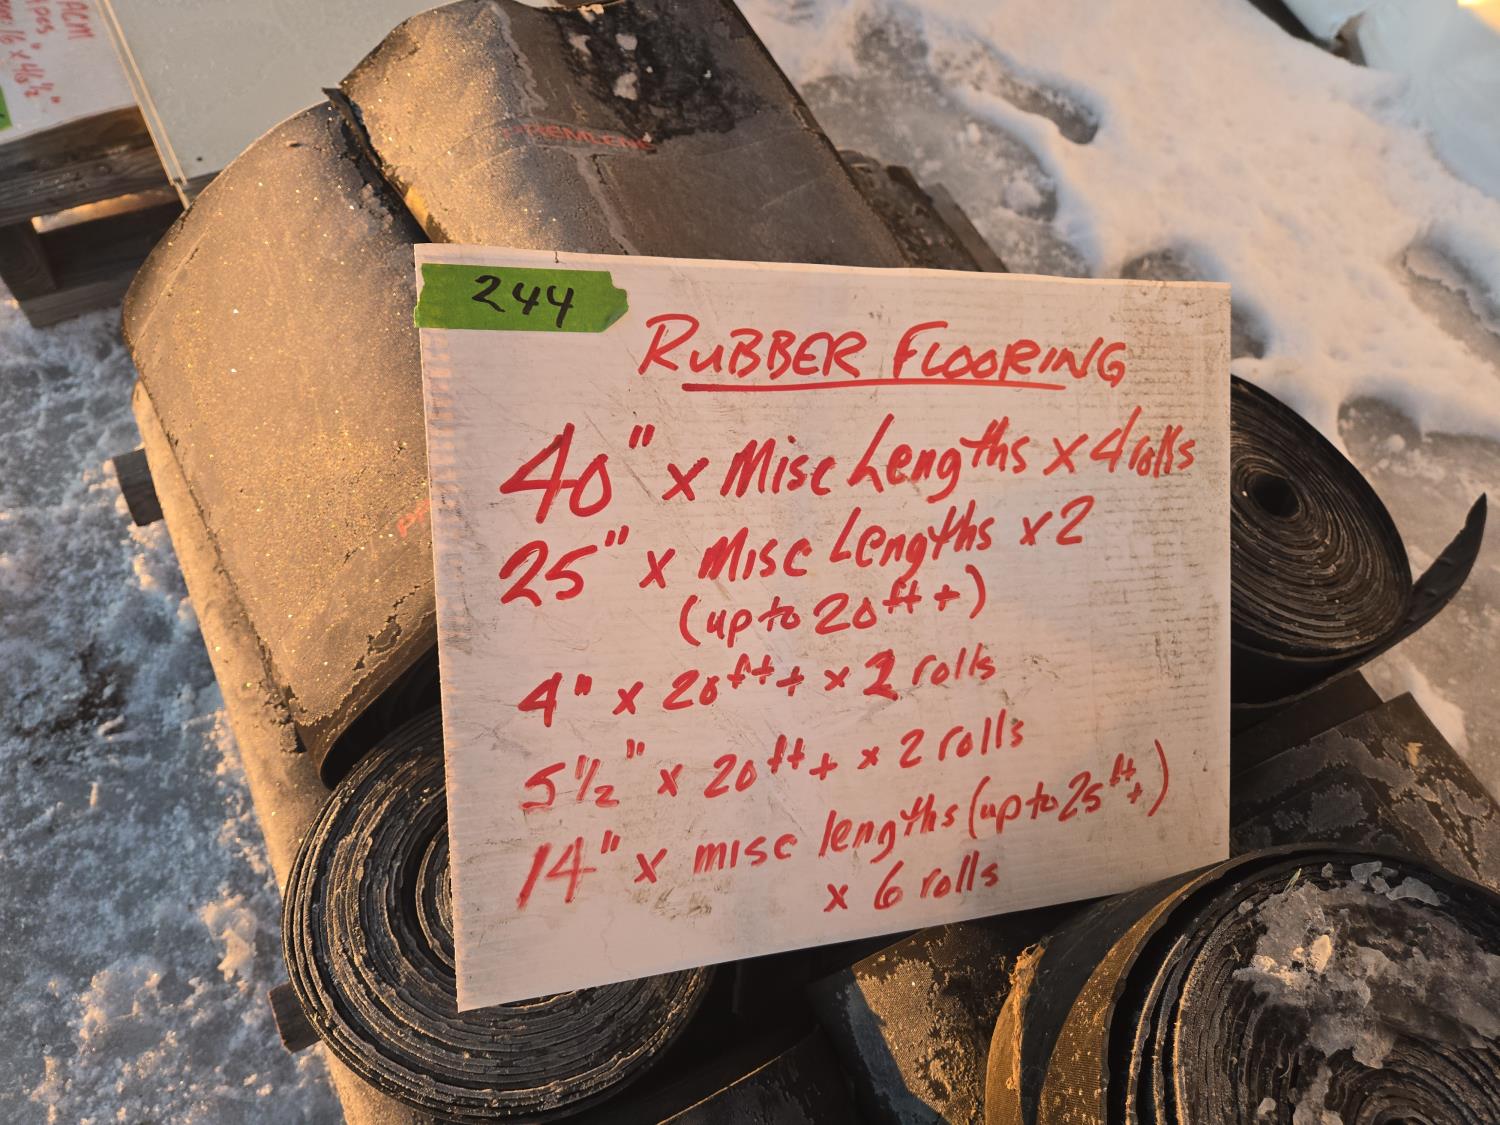 244
RUBBER FLOORING
40" x Misc Lengths x 4 rolls
25" x Misc Lengths x 2
(up to 20ft +)
4" x 20ft+ x 2 rolls
5 1/2" x 20ft+ x 2 rolls
14" x misc lengths (up to 25ft+)
x 6 rolls
ACM